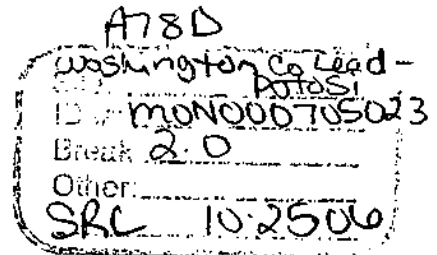 A78D
Washington Co Lead -
Potosi
ID #: MON000705023
Break: 2.0
Other:
SRC 10-25-06